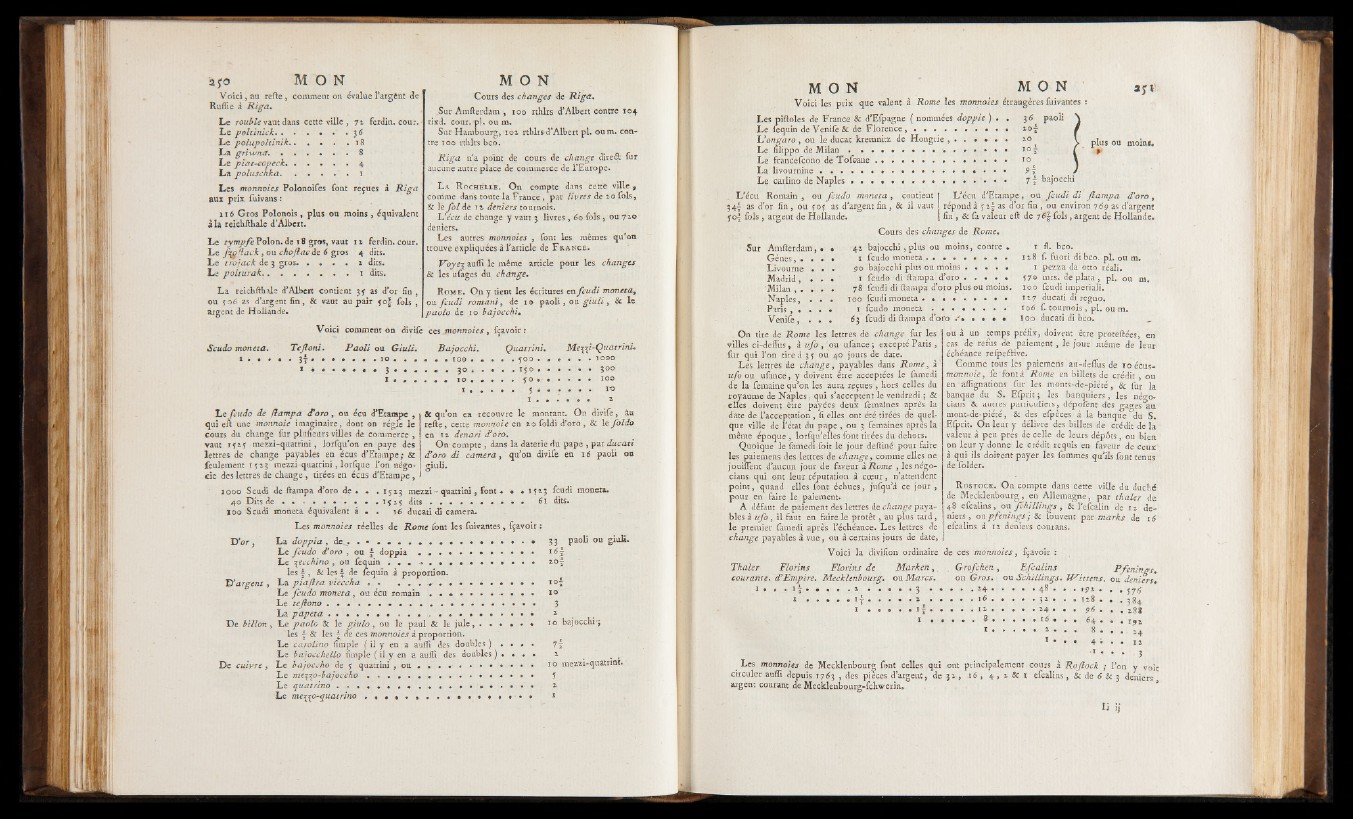 250 MON MON
Voici, au reste, comment on évalue l'argent de
Russie à Riga.
Le rouble vaut dans cette ville, 72 ferdin. cour.
Le poltinick. . . . . . . 36
Le polupoltinik. . . . . . 18
La griwna. . . . . . . 8
Le piat-copeck. . . . . . 4
La poluschka. . . . . . 1
Les monnoies Polonoises sont reçues à Riga
aux prix suivans :
116 Gros Polonois, plus ou moins, équivalent
à la reichsthale d'Albert.
Le tympfe Polon. de 18 gros, vaut 12 ferdin. cour.
de 6 gros 4 dits.
de 3 gros. . . . . 2 dits.
Le polturak. . . . . . . . 1 dits.
La reichsthale d'Albert contient 35 as d'or fin,
ou 506 as d'argent fin, & vaut au pair 50¾ sols,
argent de Hollande.
Cours des changes de Riga.
Sur Amsterdam, 100 rthlrs d'Albert contre 104
rixd. cour. pl. ou m.
Sur Hambourg, 102 rthlrs d'Albert pl. ou m. con-
tre 100 rthlrs bco.
Riga n'a point de cours de change direct sur
aucune autre place de commerce de l'Europe.
LA ROCHELLE. On compte dans cette ville,
comme dans toute la France, par livres de 20 sols,
& le sol de 12 deniers tournois.
L'écu de change y vaut 3 livres, 60 sols, ou 720
deniers.
Les autres monnoies, sont les mêmes qu'on
trouve expliquées à l'article de FRANCE.
Voyez aussi le même article pour les changes
& les usages du change.
ROME. On y tient les écritures en scudi moneta,
ou scudi romani, de 10 paoli, ou giuli, & le
paolo de 10 bajocchi.
Voici comment on divise ces monnoies, sçavoir :
Scudo moneta. Testoni. Paoli ou Giuli. Bajocchi. Quattrini. Mezzi-Quattrini.
1 . . . . . 3⅓ . . . . . . . 10 . . . . . . 100 . . . . . 500 . . . . . . 1000
1 . . . . . . . 3 . . . . . . 30 . . . . . 150 . . . . . . 300
1 . . . . . . 10 . . . . . 50 . . . . . . 100
1 . . . . . 5 . . . . . . 10
1 . . . . . . 2
Le scudo de stampa d'oro, ou écu d'Etampe,
qui est une monnoie imaginaire, dont on règle le
cours du change sur plusieurs villes de commerce,
vaut 1525 mezzi-quattrini, lorsqu'on en paye des
lettres de change payables en écus d'Etampe; &
seulement 1523 mezzi-quattrini, lorsque l'on négo-
cie des lettres de change, tirées en écus d'Etampe,
& qu'on en recouvre le montant. On divise, au
reste, cette monnoie en 20 soldi d'oro, & le soldo
en 12 denari d'oro.
On compte, dans la daterie du pape, par ducati
d'oro di camera, qu'on divise en 16 paoli ou
giuli.
1000 Scudi de stampa d'oro de . . . 1523 mezzi-quattrini, font . . . 1523 scudi moneta.
40 Dits de . . . . . . . . . . 1525 dits . . . . . . . . . . 61 dits.
100 Scudi moneta équivalent à . . . 16 ducati di camera.
Les monnoies réelles de Rome sont les suivantes, sçavoir :
D'or, La doppia, de. . . . . . . . . . . . . . 33 paoli ou giuli.
Le scudo d'oro, ou ½ doppia . . . . . . . . . . 16½
Le zecchino, ou sequin . . . . . . . . . . . . 20½
les ½, & les ¼ de sequin à proportion.
D'argent, La piastra vieccha . . . . . . . . . . . . . 10½
Le scudo moneta, ou écu romain . . . . . . . . . 10
Le testono . . . . . . . . . . . . . . . . 3
La papeta . . . . . . . . . . . . . . . . 2
De billon, Le paolo & le giulo, ou le paul & le jule, . . . . . . 10 bajocchi;
les ½ & les ¼ de ces monnoies à proportion.
Le carolino simple (il y en a aussi des doubles) . . . . 7½
Le baiocchello simple (il y en a aussi des doubles) . . . . 2
De cuivre, Le bajoccho de 5 quattrini, ou . . . . . . . . . . 10 mezzi-quattrini.
Le mezzo-bajoccho . . . . . . . . . . . . . . 5
Le quattrino . . . . . . . . . . . . . . . . 2
Le mezzo-quattrino . . . . . . . . . . . . . . 1
MON MON 251
Voici les prix que valent à Rome les monnoies étrangères suivantes :
Les pistoles de France & d'Espagne (nommées doppie) . . 36 paoli
Le sequin de Venise & de Florence, . . . . . . . . . 20½
L'ongaro, ou le ducat kremnitz de Hongrie, . . . . . . 20
Le filippo de Milan . . . . . . . . . . . . . . 10½
Le francescono de Toscane . . . . . . . . . . . . 10
La livournine . . . . . . . . . . . . . . . . 9½
Le carlino de Naples . . . . . . . . . . . . . . 7½ bajocchi
plus ou moins.
L'écu Romain, ou scudo moneta, contient
34½ as d'or fin, ou 505 as d'argent fin, & il vaut
50½ sols, argent de Hollande.
L'écu d'Etampe, ou scudi di stampa d'oro,
répond à 52½ as d'or fin, ou environ 769 as d'argent
fin, & sa valeur est de 76¾ sols, argent de Hollande.
Cours des changes de Rome.
Sur Amsterdam, . . 42 bajocchi, plus ou moins, contre . 1 fl. bco.
Gênes, . . . . 1 scudo moneta . . . . . . . . . 128 s. fuori di bco. pl. ou m.
Livourne . . . 90 bajocchi plus ou moins . . . . . 1 pezza da otto reali.
Madrid, . . . . 1 scudo di stampa d'oro . . . . . 570 mrs. de plata, pl. ou m.
Milan, . . . . . 78 scudi di stampa d'oro plus ou moins. 100 scudi imperiali.
Naples, . . . . 100 scudi moneta . . . . . . . . . 127 ducati di regno.
Paris, . . . . . 1 scudo moneta . . . . . . . . . 106 s. tournois, pl. ou m.
Venise, . . . . 63 scudi di stampa d'oro . . . . . . 100 ducati di bco.
On tire de Rome les lettres de change sur les
villes ci-dessus, à uso, ou usance; excepté Paris,
sur qui l'on tire à 35 ou 40 jours de date.
Les lettres de change, payables dans Rome, à
uso ou usance, y doivent être acceptées le samedi
de la semaine qu'on les aura reçues, hors celles du
royaume de Naples, qui s'acceptent le vendredi; &
elles doivent être payées deux semaines après la
date de l'acceptation, si elles ont été tirées de quel-
que ville de l'état du pape, ou 3 semaines après la
même époque, lorsqu'elles sont tirées du dehors.
Quoique le samedi soit le jour destiné pour faire
les paiemens des lettres de change, comme elles ne
jouissent d'aucun jour de faveur à Rome, les négo-
cians qui ont leur réputation à cœur, n'attendent
point, quand elles sont échues, jusqu'à ce jour,
pour en faire le paiement.
A défaut de paiement des lettres de change paya-
bles à uso, il faut en faire le protêt, au plus tard,
le premier samedi après l'échéance. Les lettres de
change payables à vue, ou à certains jours de date,
ou à un temps préfix, doivent être protestées, en
cas de refus de paiement, le jour même de leur
échéance respective.
Comme tous les paiemens au-dessus de 10 écus-
monnoie, se font à Rome en billets de crédit, ou
en assignations sur les monts-de-piété, & sur la
banque du S. Esprit; les banquiers, les négo-
cians & autres particuliers, déposent des gages au
mont-de-piété, & des espèces à la banque du S.
Esprit. On leur y délivre des billets de crédit de la
valeur à peu près de celle de leurs dépôts, ou bien
on leur y donne le crédit requis en faveur de ceux
à qui ils doivent payer les sommes qu'ils sont tenus
de solder.
ROSTOCK. On compte dans cette ville du duché
de Mecklenbourg, en Allemagne, par thaler de
48 escalins, ou schillings, & l'escalin de 12 de-
niers, ou pfenings; & souvent par marks de 16
escalins à 12 deniers courans.
Voici la division ordinaire de ces monnoies, sçavoir :
Thaler Florins Florins de Marken, Groschen, Escalins Pfenings,
courante. d'Empire. Mecklenbourg. ou Marcs. ou Gros. ou Schillings. Wittens. ou deniers.
1 . . . 1½ . . . . . 2 . . . . . . 3 . . . . . 24 . . . . . 48 . . . 192 . . . 576
1 . . . . . 1⅓ . . . . . 2 . . . . . 16 . . . . . 32 . . . 128 . . . 384
1 . . . . . 1½ . . . . . 12 . . . . . 24 . . . 96 . . . 288
1 . . . . . 8 . . . . . 16 . . . 64 . . . 192
1 . . . . . 2 . . . 8 . . . 24
1 . . . 4 . . . 12
1 . . . 3
Les monnoies de Mecklenbourg sont celles qui ont principalement cours à Rostock; l'on y voit
circuler aussi depuis 1763, des pièces d'argent, de 32, 16, 4, 2 & 1 escalins, & de 6 & 3 deniers,
argent courant de Mecklenbourg-schwerin.
Ii ij